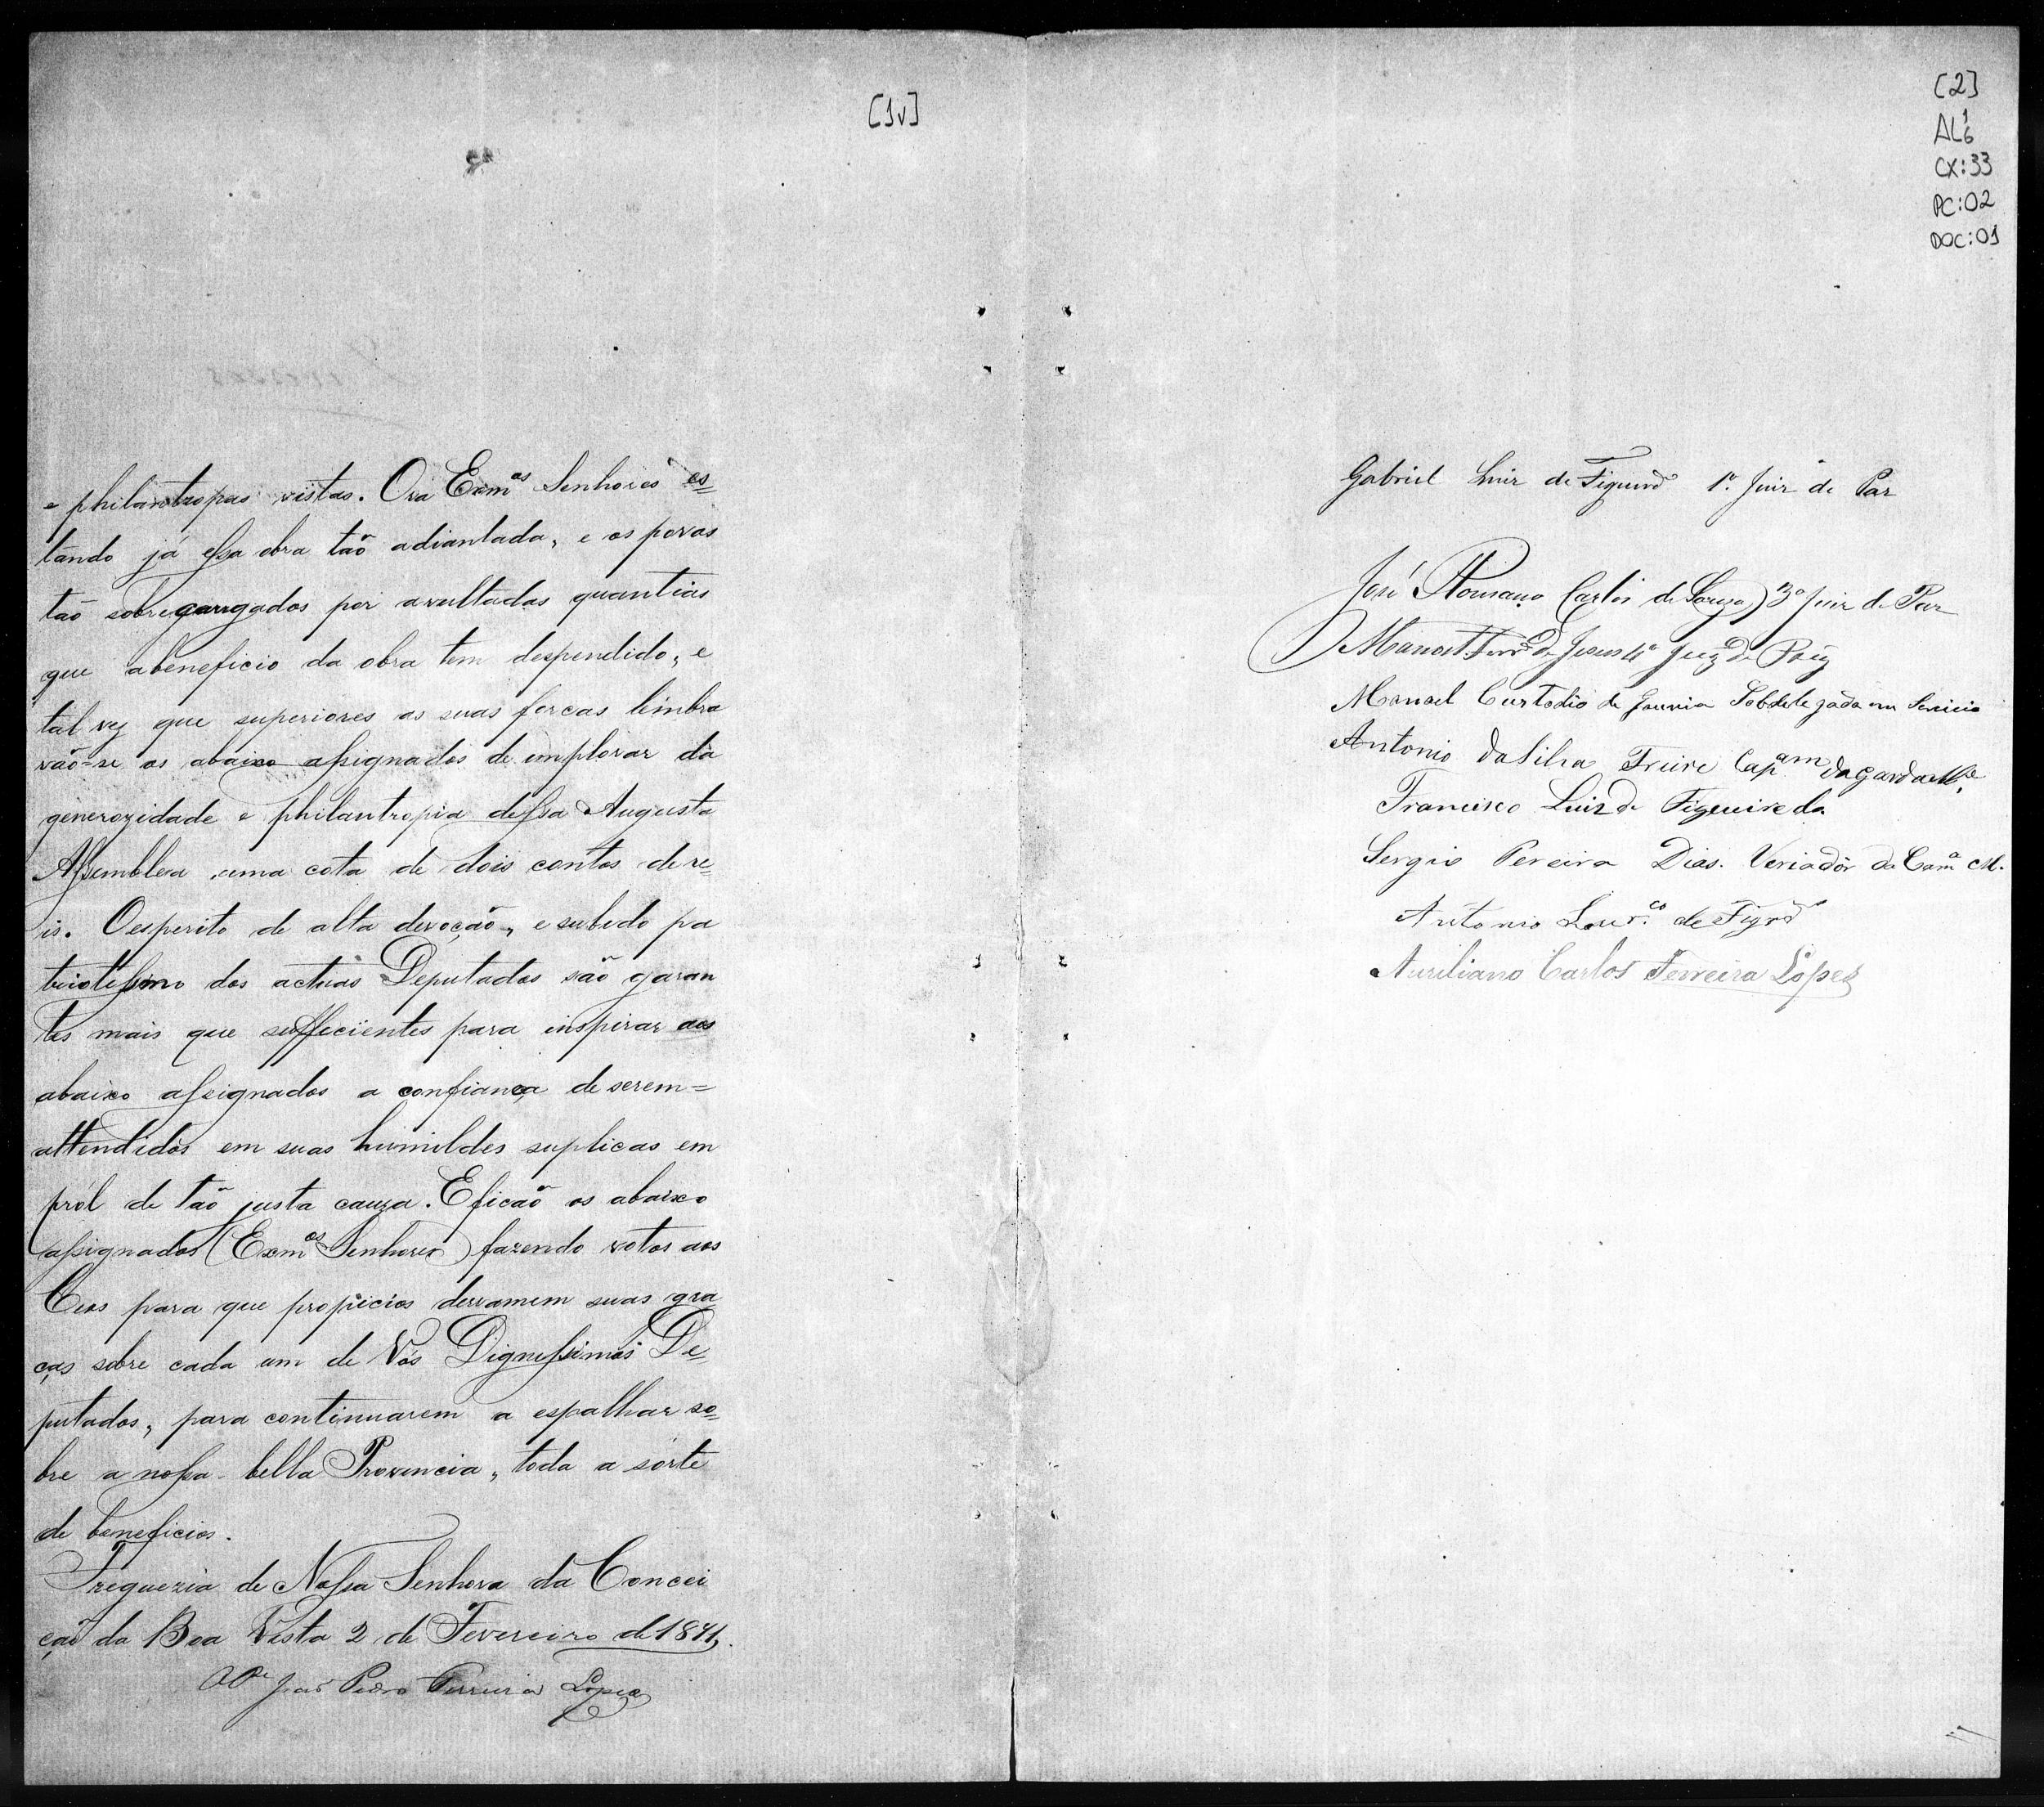 [1v]
e philantropas vistas. Ora Exmos Senhores es=
tando já essa obra taõ adiantada, e os povos
taõ sobregarregados por avultadas quantias
que abeneficio da obra tem despendido, e
tal vez que superiores as suas forcas limbra
vaõ=se os abaixo assignados de emplorar da
generozidade e philantropia dessa Augusta
Assemblea uma cota de dois contos de re=
is. Oesperito de alta devoção, e subido pa
triotissmo dos actuas Deputados saõ garan
tes mais que suffecientes para inspirar aos
abaixo assignados a confiança de serem=
attendidos em suas humildes suplicas em
pról de taõ justa cauza. Eficaõ os abaixo
assignados (Exmos Senhores) fazendo votos aos
Ceos para que propicios derramem suas gra
ças sobre cada um de Vós Dignissimos De=
putados, para continuarem a espalhar so=
bre a nossa bella Provincia, toda a sorte
de beneficios.
Freguezia de Nossa Senhora da Concei
çaõ da Boa Vista 2 de Fevereiro de 1871.
Pedro Ferreira Lopes
[2]
AL16
CX:33
PC:02
DOC:01
Gabriel Luiz de Figueirdo 1º. Juiz de Paz
José Romano Carlos de Souza 3º Juiz de Paz
Manoel de Jesus 4º Juiz de Paiz
Manoel Custodio de Gouvia Sobdelegado em Servicio
Antonio da Silva Freire Capam da garda
Francisco Luiz de Figueiredo
Sergio Pereira Dias. Veriadôr da Camª M.
Antonio de Figrdo
Auriliano Carlos Ferreira Lopes